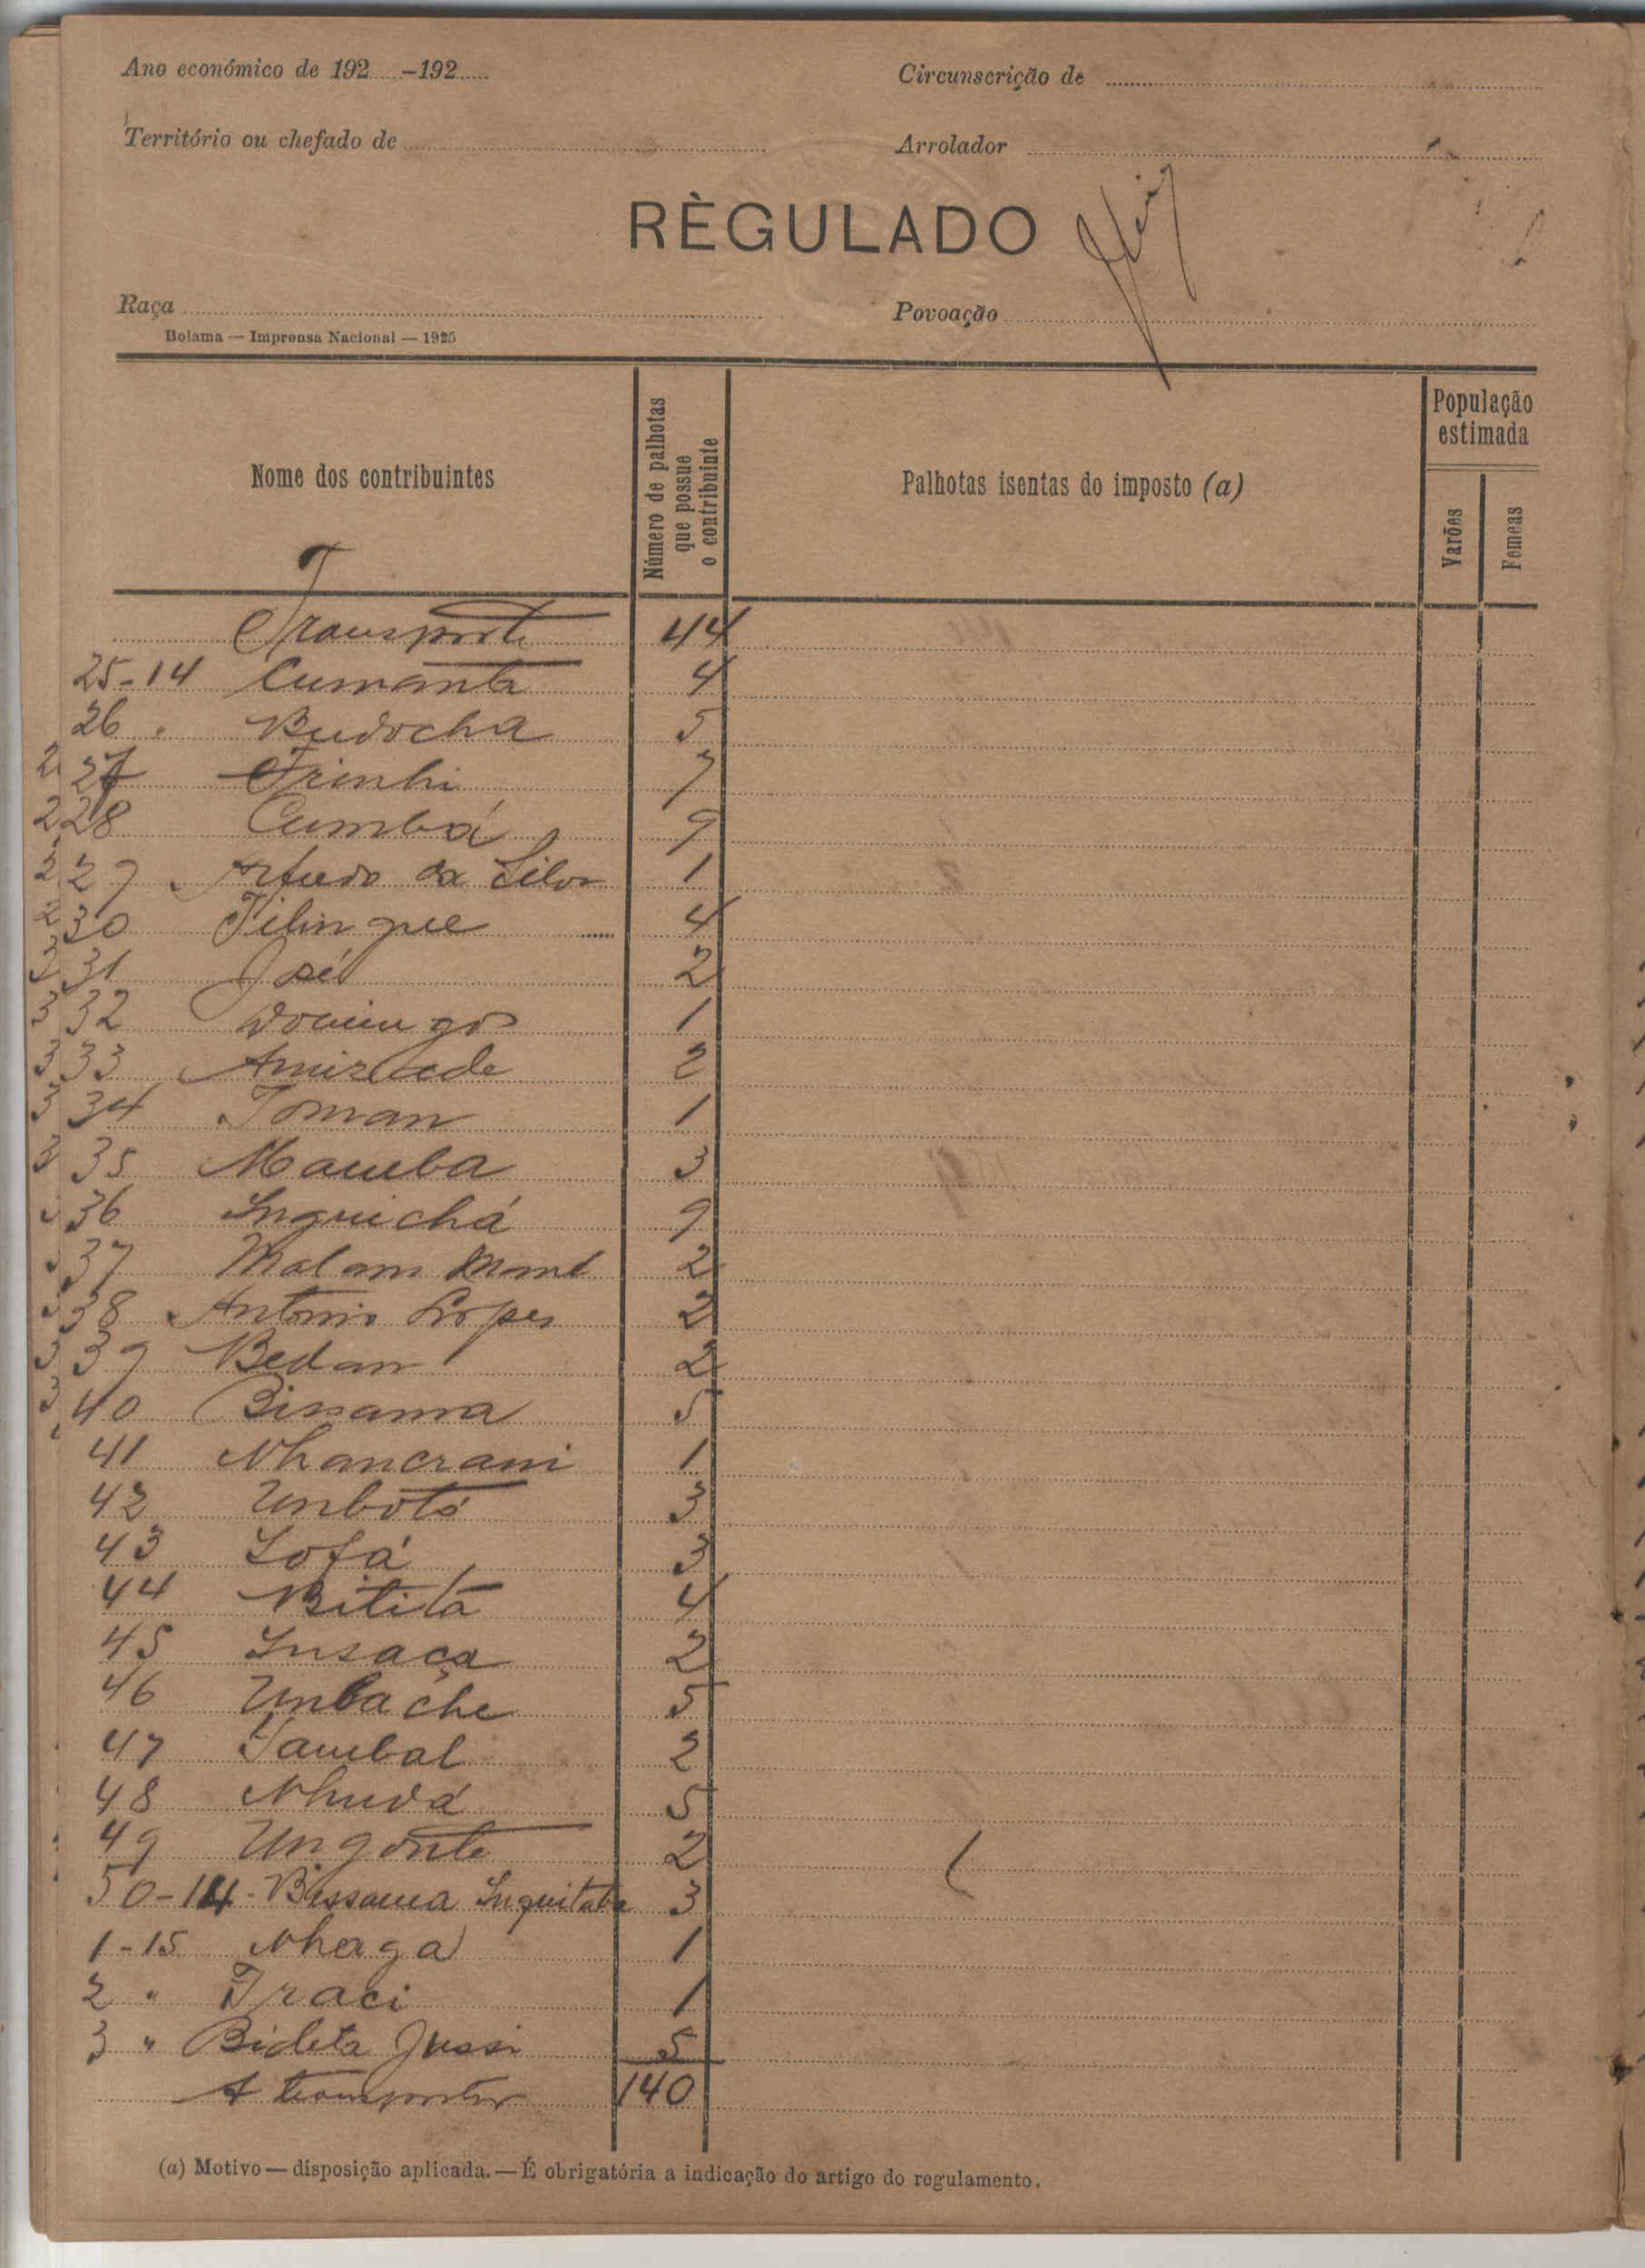 Ano económico de 192 -192
Circunscrição de
Território ou chefado de
Arrolador
RÈGULADO
Raça
Povoação
Bolama — Imprensa Nacional — 1925
Nome dos contribuintes
Número de palhotas que possue o contribuinte
Palhotas isentas do imposto (a)
População estimada
Varões
Femeas
Transporte 44
25-14 Cumanta 4
26 " Budocha 5
27 Trinhi 7
28 Cumbá 9
29 Arturo da Silva 1
30 Tilingue 4
31 José 2
32 Domingos 1
33 Amizade 2
34 Toman 1
35 Mamba 3
36 Inguichá 9
37 Malam Mané 2
38 Antonio Lopes 2
39 Bedam 2
40 Binhama 5
41 Nhancrani 1
42 Unbotó 3
43 Lofá 3
44 Bitita 4
45 Insaca 2
46 Unbache 5
47 Tambal 2
48 Nhudá 5
49 Ungonte 2
50-14 Bissama Inquitaba 3
1-15 Nhaga 1
2 " Traci 1
3 " Bideta Jussi 5
A transportar 140
(a) Motivo — disposição aplicada. — É obrigatória a indicação do artigo do regulamento.